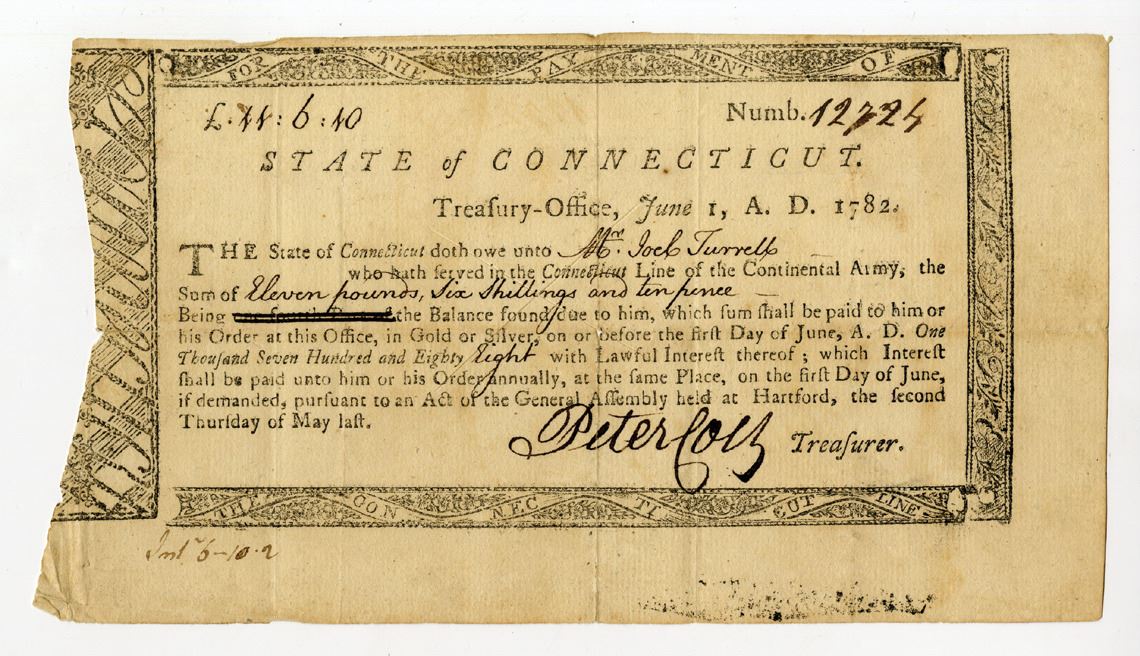 FOR THE PAY MENT OF
£.11:6:10 Numb. 12724
STATE of CONNECTICUT.
Treaſury-Office, June 1, A. D. 1782.
THE State of Connecticut doth owe unto Mr. Joel Turrell
who hath ſerved in the Connecticut Line of the Continental Army, the
Sum of Eleven pounds, Six Shillings and ten pence
Being the Balance found due to him, which ſum ſhall be paid to him or
his Order at this Office, in Gold or Silver, on or before the firſt Day of June, A. D. One
Thouſand Seven Hundred and Eighty eight with Lawful Intereſt thereof; which Intereſt
ſhall be paid unto him or his Order annually, at the ſame Place, on the firſt Day of June,
if demanded, purſuant to an Act of the General Aſſembly held at Hartford, the ſecond
Thurſday of May laſt.
Peter Colt Treaſurer.
THE CON NEC TI CUT LINE
Intt 6-10-2